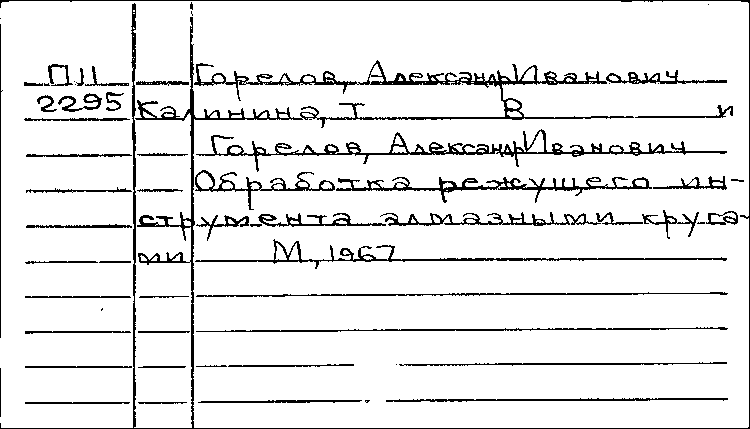 П11 Горелов, Александр Иванович
2295 Калинина, Т В и
Горелов, Александр Иванович
Обработка режущего ин-
струмента алмазными круга-
ми М., 1967